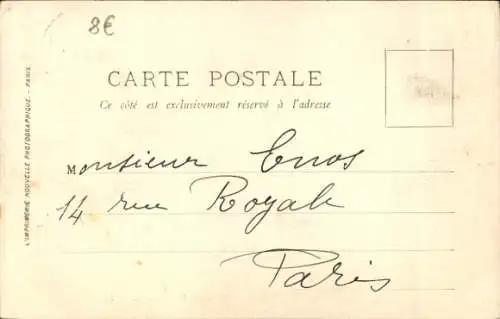 8€
CARTE POSTALE
Ce côté est exclusivement réservé à l'adresse
Monsieur Enos
14 rue Royale
Paris
L'IMPRIMERIE NOUVELLE PHOTOGRAPHIQUE. - PARIS